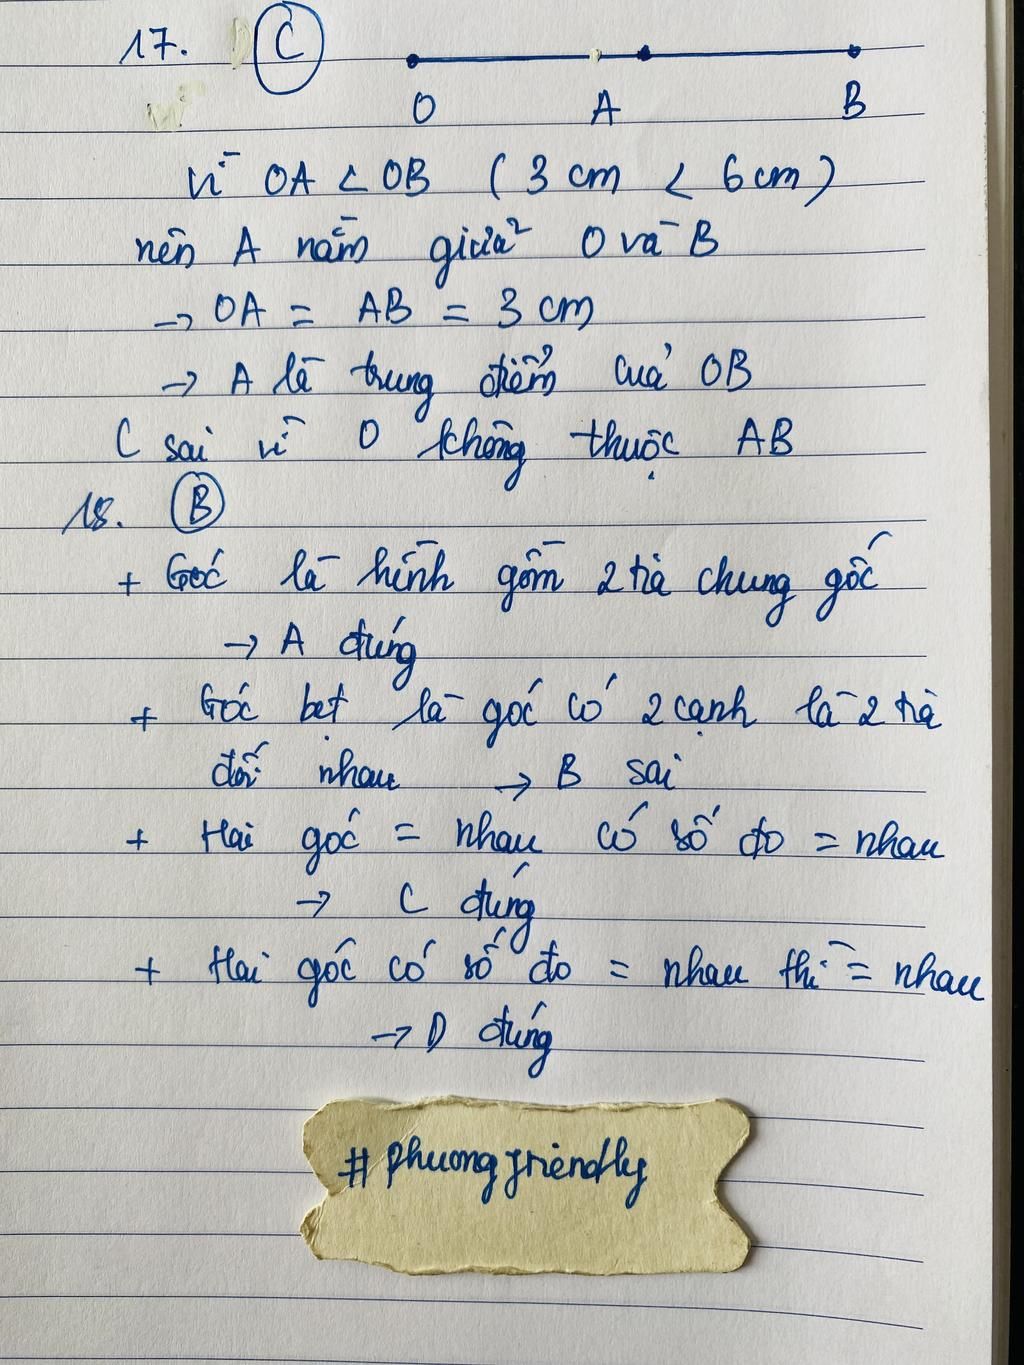 17. C
O A B
vì OA < OB ( 3 cm < 6 cm )
nên A nằm giữa 2 O và B
→ OA = AB = 3 cm
→ A là trung điểm của OB
C sai vì O không thuộc AB
18. B
+ Góc là hình gồm 2 tia chung gốc
→ A đúng
+ Góc bẹt là góc có 2 cạnh là 2 tia
đối nhau → B sai
+ Hai góc = nhau có số đo = nhau
→ C đúng
+ Hai góc có số đo = nhau thì = nhau
→ D đúng
# phuongfriendly